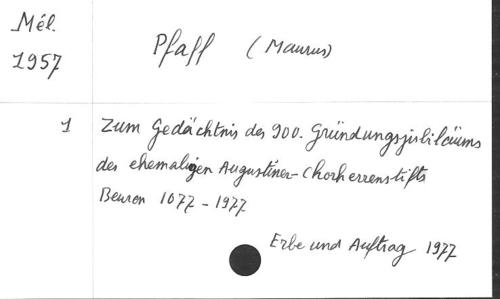 Mél.
1957
Pfaff (Maurus)
1 Zum Gedächtnis des 900. Gründungsjubiläums
des ehemaligen Augustiner-Chorherrenstifts
Beuron 1077 - 1977
Erbe und Auftrag 1977